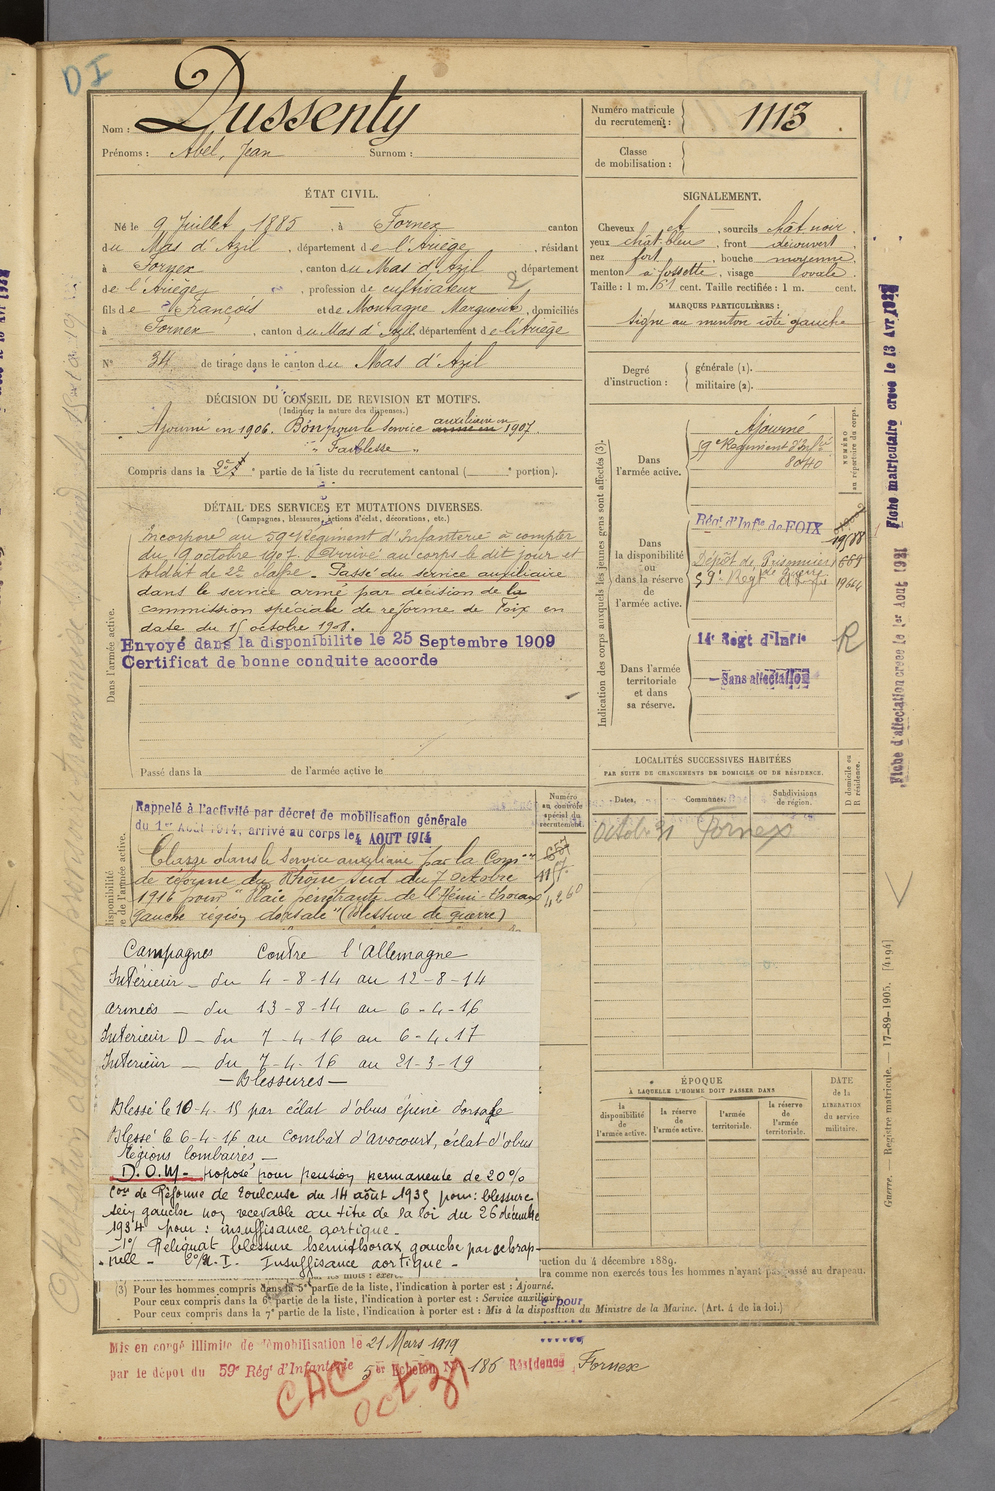 DI
Nom : Dussenty
Prénoms : Abel, Jean Surnom :
Numéro matricule du recrutement : 1113
Classe de mobilisation :
ÉTAT CIVIL.
Né le 9 Juillet 1885, à Fornex canton
du Mas d'Azil, département de l'Ariège, résidant
à Fornex, canton du Mas d'Azil département
de l'Ariège, profession de cultivateur
fils de François et de Montagne Marguerite, domiciliés
à Fornex, canton du Mas d'Azil département de l'Ariège
N° 34 de tirage dans le canton du Mas d'Azil
DÉCISION DU CONSEIL DE REVISION ET MOTIFS.
(Indiquer la nature des dispenses.)
Ajourné en 1906. Bon pour le service auxiliaire en 1907.
" Faiblesse "
Compris dans la partie de la liste du recrutement cantonal ( ° portion).
DÉTAIL DES SERVICES ET MUTATIONS DIVERSES.
(Campagnes, blessures, actions d'éclat, décorations, etc.)
Dans l'armée active.
Incorporé au 59e Régiment d'Infanterie à compter
du 9 octobre 1907. Arrivé au corps le dit jour et
soldat de 2e classe. Passé du service auxiliaire
dans le service armé par décision de la
commission spéciale de réforme de Foix en
date du 15 octobre 1908.
Envoyé dans la disponibilite le 25 Septembre 1909
Certificat de bonne conduite accorde
Passé dans la de l'armée active le
Rappelé à l'activité par décret de mobilisation générale
du 1er Août 1914, arrivé au corps le 4 AOUT 1914
Classé dans le Service auxiliaire par la Comon
de réforme du Rhône sud du 7 octobre
1916 pour "Plaie pénétrante de l'Hémi-thorax
gauche région dorsale" (Blessure de guerre)
Numéro au contrôle spécial du recrutement.
Campagnes Contre l'Allemagne
Intérieur _ du 4-8-14 au 12-8-14
armées _ du 13-8-14 au 6-4-16
Intérieur D _ du 7-4-16 au 6-4-17
Intérieur _ du 7-4-16 au 21-3-19
— Blessures —
Blessé le 10-4-15 par éclat d'obus épine dorsale
Blessé le 6-4-16 au combat d'Avocourt, éclat d'obus
Régions lombaires _
D.O.M- proposé pour pension permanente de 20%
Con de Réforme de Toulouse du 14 août 1935 pour: blessure
sein gauche non recevable au titre de la loi du 26 décembre
1934 pour : insuffisance aortique _
_1°/ Reliquat blessure hemithorax gauche par schrap-
nell - 2°/ Insuffisance aortique -
(3) Pour les hommes compris dans la 5e partie de la liste, l'indication à porter est : Ajourné.
Pour ceux compris dans la 6e partie de la liste, l'indication à porter est : Service auxiliaire
Pour ceux compris dans la 7e partie de la liste, l'indication à porter est : Mis à la disposition du Ministre de la Marine. (Art. 4 de la loi.)
ruction du 4 décembre 1889.
dra comme non exercés tous les hommes n'ayant pas passé au drapeau.
e pour
Mis en congé illimité de démobilisation le 21 Mars 1919
par le dépot du 59e Régt d'Infanterie 5er Echelon N° 186 Résidence Fornex
CAC
Oct 31
SIGNALEMENT.
Cheveux , sourcils chât noir
yeux chât-bleu, front découvert
nez fort, bouche moyenne
menton à fossette, visage ovale
Taille : 1 m. 61 cent. Taille rectifiée : 1 m. cent.
MARQUES PARTICULIÈRES :
signe au menton côté gauche
Degré d'instruction : générale (1).
militaire (2).
Indication des corps auxquels les jeunes gens sont affectés (3).
NUMÉRO au répertoire du corps.
Dans l'armée active.
Ajourné
59e Régiment d'Infie
Dans la disponibilité ou dans la réserve de l'armée active.
Régt d'Infie de FOIX
Dépôt de Prisonniers
de guerre
59e Regt d'Infie
Dans l'armée territoriale et dans sa réserve.
14e Regt d'Infie
R
Sans affectation
LOCALITÉS SUCCESSIVES HABITÉES
PAR SUITE DE CHANGEMENTS DE DOMICILE OU DE RÉSIDENCE.
Dates. Communes. Subdivisions de région. D domicile ou R résidence.
Octobre 31 Fornex
ÉPOQUE
À LAQUELLE L'HOMME DOIT PASSER DANS
la disponibilité de l'armée active. la réserve de l'armée active. l'armée territoriale. la réserve de l'armée territoriale.
DATE de la LIBÉRATION du service militaire.
Fiche matriculaire creee le 13 Avr
Fiche d'affectation creee le 1er Aout 1931
Guerre. — Registre matricule. — 17-89-1905. [4194]